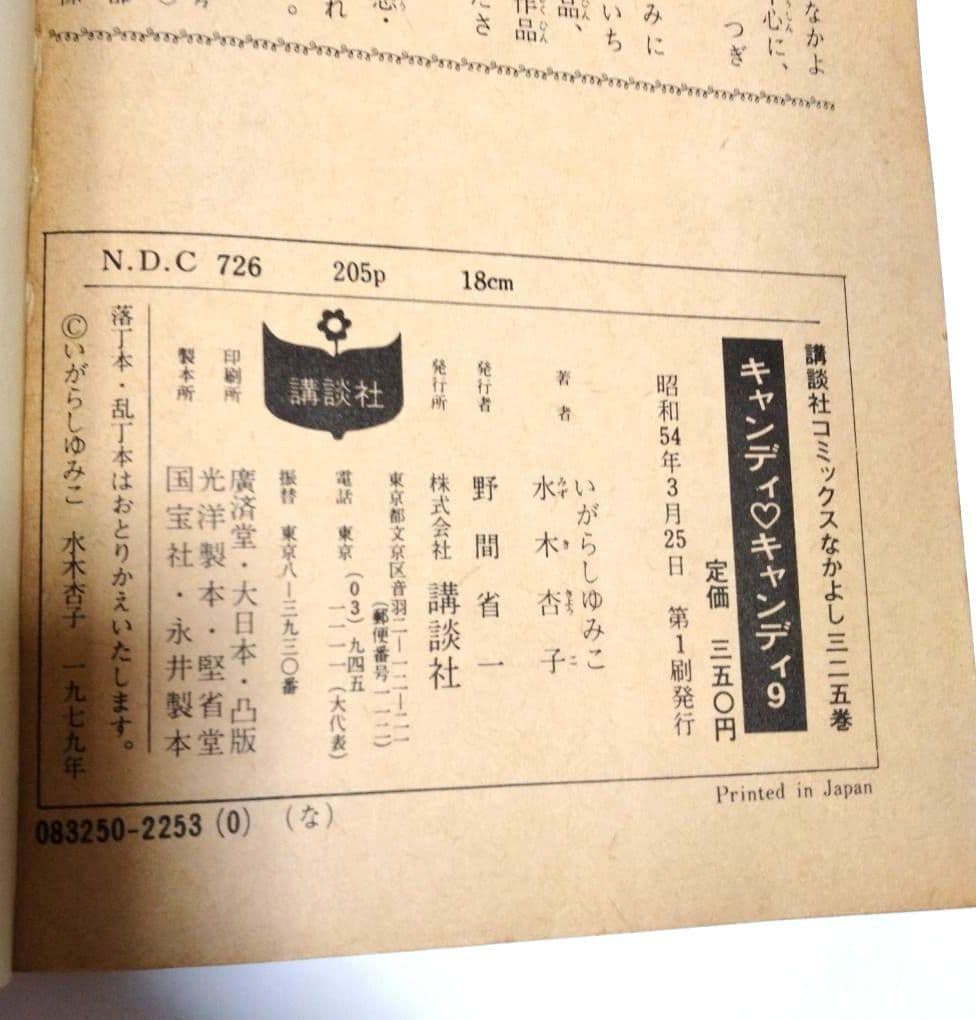 なかよ
心に、
つぎ
みに
いち
品、
作品
ださ
N.D.C 726 205p 18cm
講談社コミックスなかよし 三二五巻
キャンディ♡キャンディ9
定価 三五〇円
昭和54年3月25日 第1刷発行
著者 いがらしゆみこ
水木杏子
発行者 野間省一
発行所 株式会社 講談社
東京都文京区音羽二―一二―二一
(郵便番号一一二)
電話 東京(03)九四五
一一一一(大代表)
振替 東京八―三九三〇番
講談社
印刷所 廣済堂・大日本・凸版
製本所 光洋製本・堅省堂
国宝社・永井製本
落丁本・乱丁本はおとりかえいたします。
©いがらしゆみこ 水木杏子 一九七九年
Printed in Japan
083250-2253(0) (な)